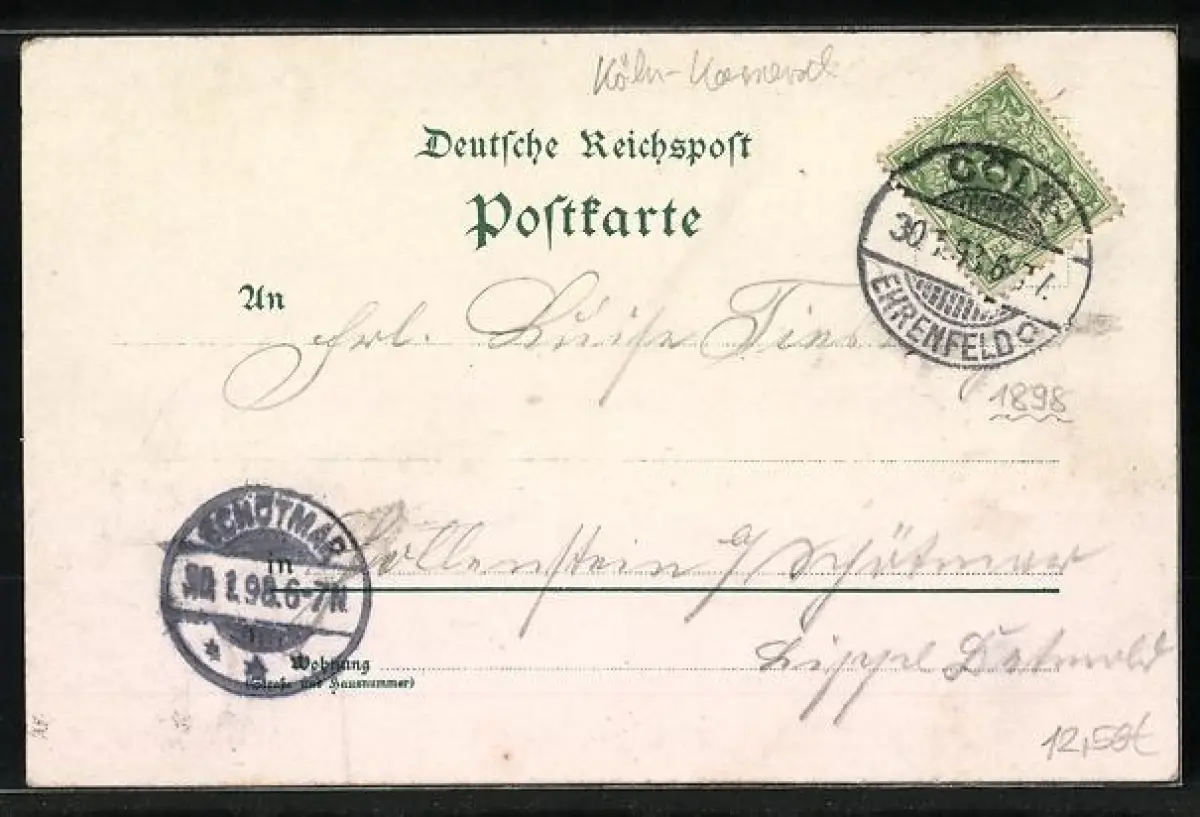 Köln-Karneval
Deutsche Reichspost
Postkarte
CÖLN-
30.1.98.6-7N.
EHRENFELD C
An
Frl. Luise
1898
SCHÖTMAR
30.1.98.6-7N.
in
Hollenstein a/ Schötmar
Wohnung
(Straße und Hausnummer)
Lippe Detmold
12,50€